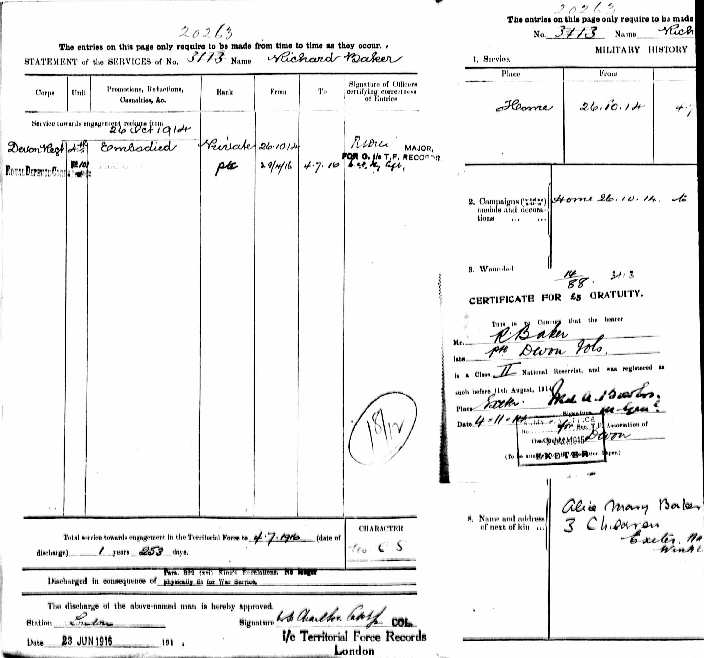 20263
The entries on this page only require to be made from time to time as they occur.
STATEMENT of the SERVICES of No. 3713 Name Richard Baker
Corps Unit Promotions, Reductions, Casualties, &c. Rank From To Signature of Officers certifying correctness of Entries
Service towards engagement reckons from
26 Oct 1914
Devon Regt 4th Embodied Private 26.10.14 MAJOR,
FOR O. i/c T.F. RECORDS
Royal Defence Corps pte 29/4/16 4.7.16
18/12
Total service towards engagement in the Territorial Force to 4.7.1916 (date of
discharge) 1 years 253 days.
CHARACTER
Discharged in consequence of Para. 392 (xvi) King's Regulations. No longer
physically fit for War Service.
The discharge of the above-named man is hereby approved.
Station London Signature COL.
Date 23 JUN 1916 191 . i/c Territorial Force Records
London
20263
The entries on this page only require to be made
No. 3713 Name Rich
MILITARY HISTORY
1. Service.
Place From
Home 26.10.14 4.7
2. Campaigns
medals and decora-
tions ... ...
Home 26.10.14. to
3. Wounded
14/88 3713
CERTIFICATE FOR £5 GRATUITY.
This is to Certify that the bearer
Mr. R Baker
late pte Devon Vols.
is a Class II National Reservist, and was registered as
such before 11th August, 1914
Place Exeter.
Signature
Date 4-11-14
Association of
Devon
EXETER
8. Name and address
of next of kin ...
Alice Mary Baker
3 Children
Exeter